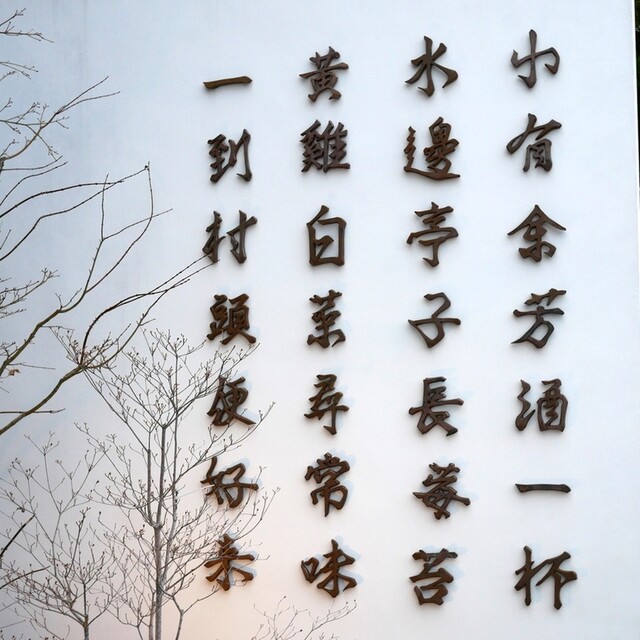 小有余芳酒一杯
水邊亭子長莓苔
黃雞白菜尋常味
一到村頭便好來